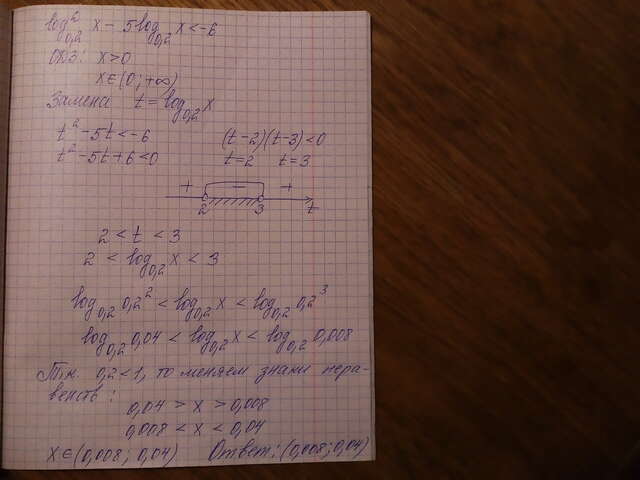 log²₀,₂ x - 5log₀,₂ x < -6
ОДЗ: x>0
x∈(0; +∞)
Замена t = log₀,₂ x
t² - 5t < -6 (t-2)(t-3)<0
t² - 5t + 6 < 0 t=2 t=3
+ - +
2 3 t
2 < t < 3
2 < log₀,₂ x < 3
log₀,₂ 0,2² < log₀,₂ x < log₀,₂ 0,2³
log₀,₂ 0,04 < log₀,₂ x < log₀,₂ 0,008
Т.к. 0,2<1, то меняем знаки нера-
венств:
0,04 > x > 0,008
0,008 < x < 0,04
x∈(0,008; 0,04) Ответ: (0,008; 0,04)